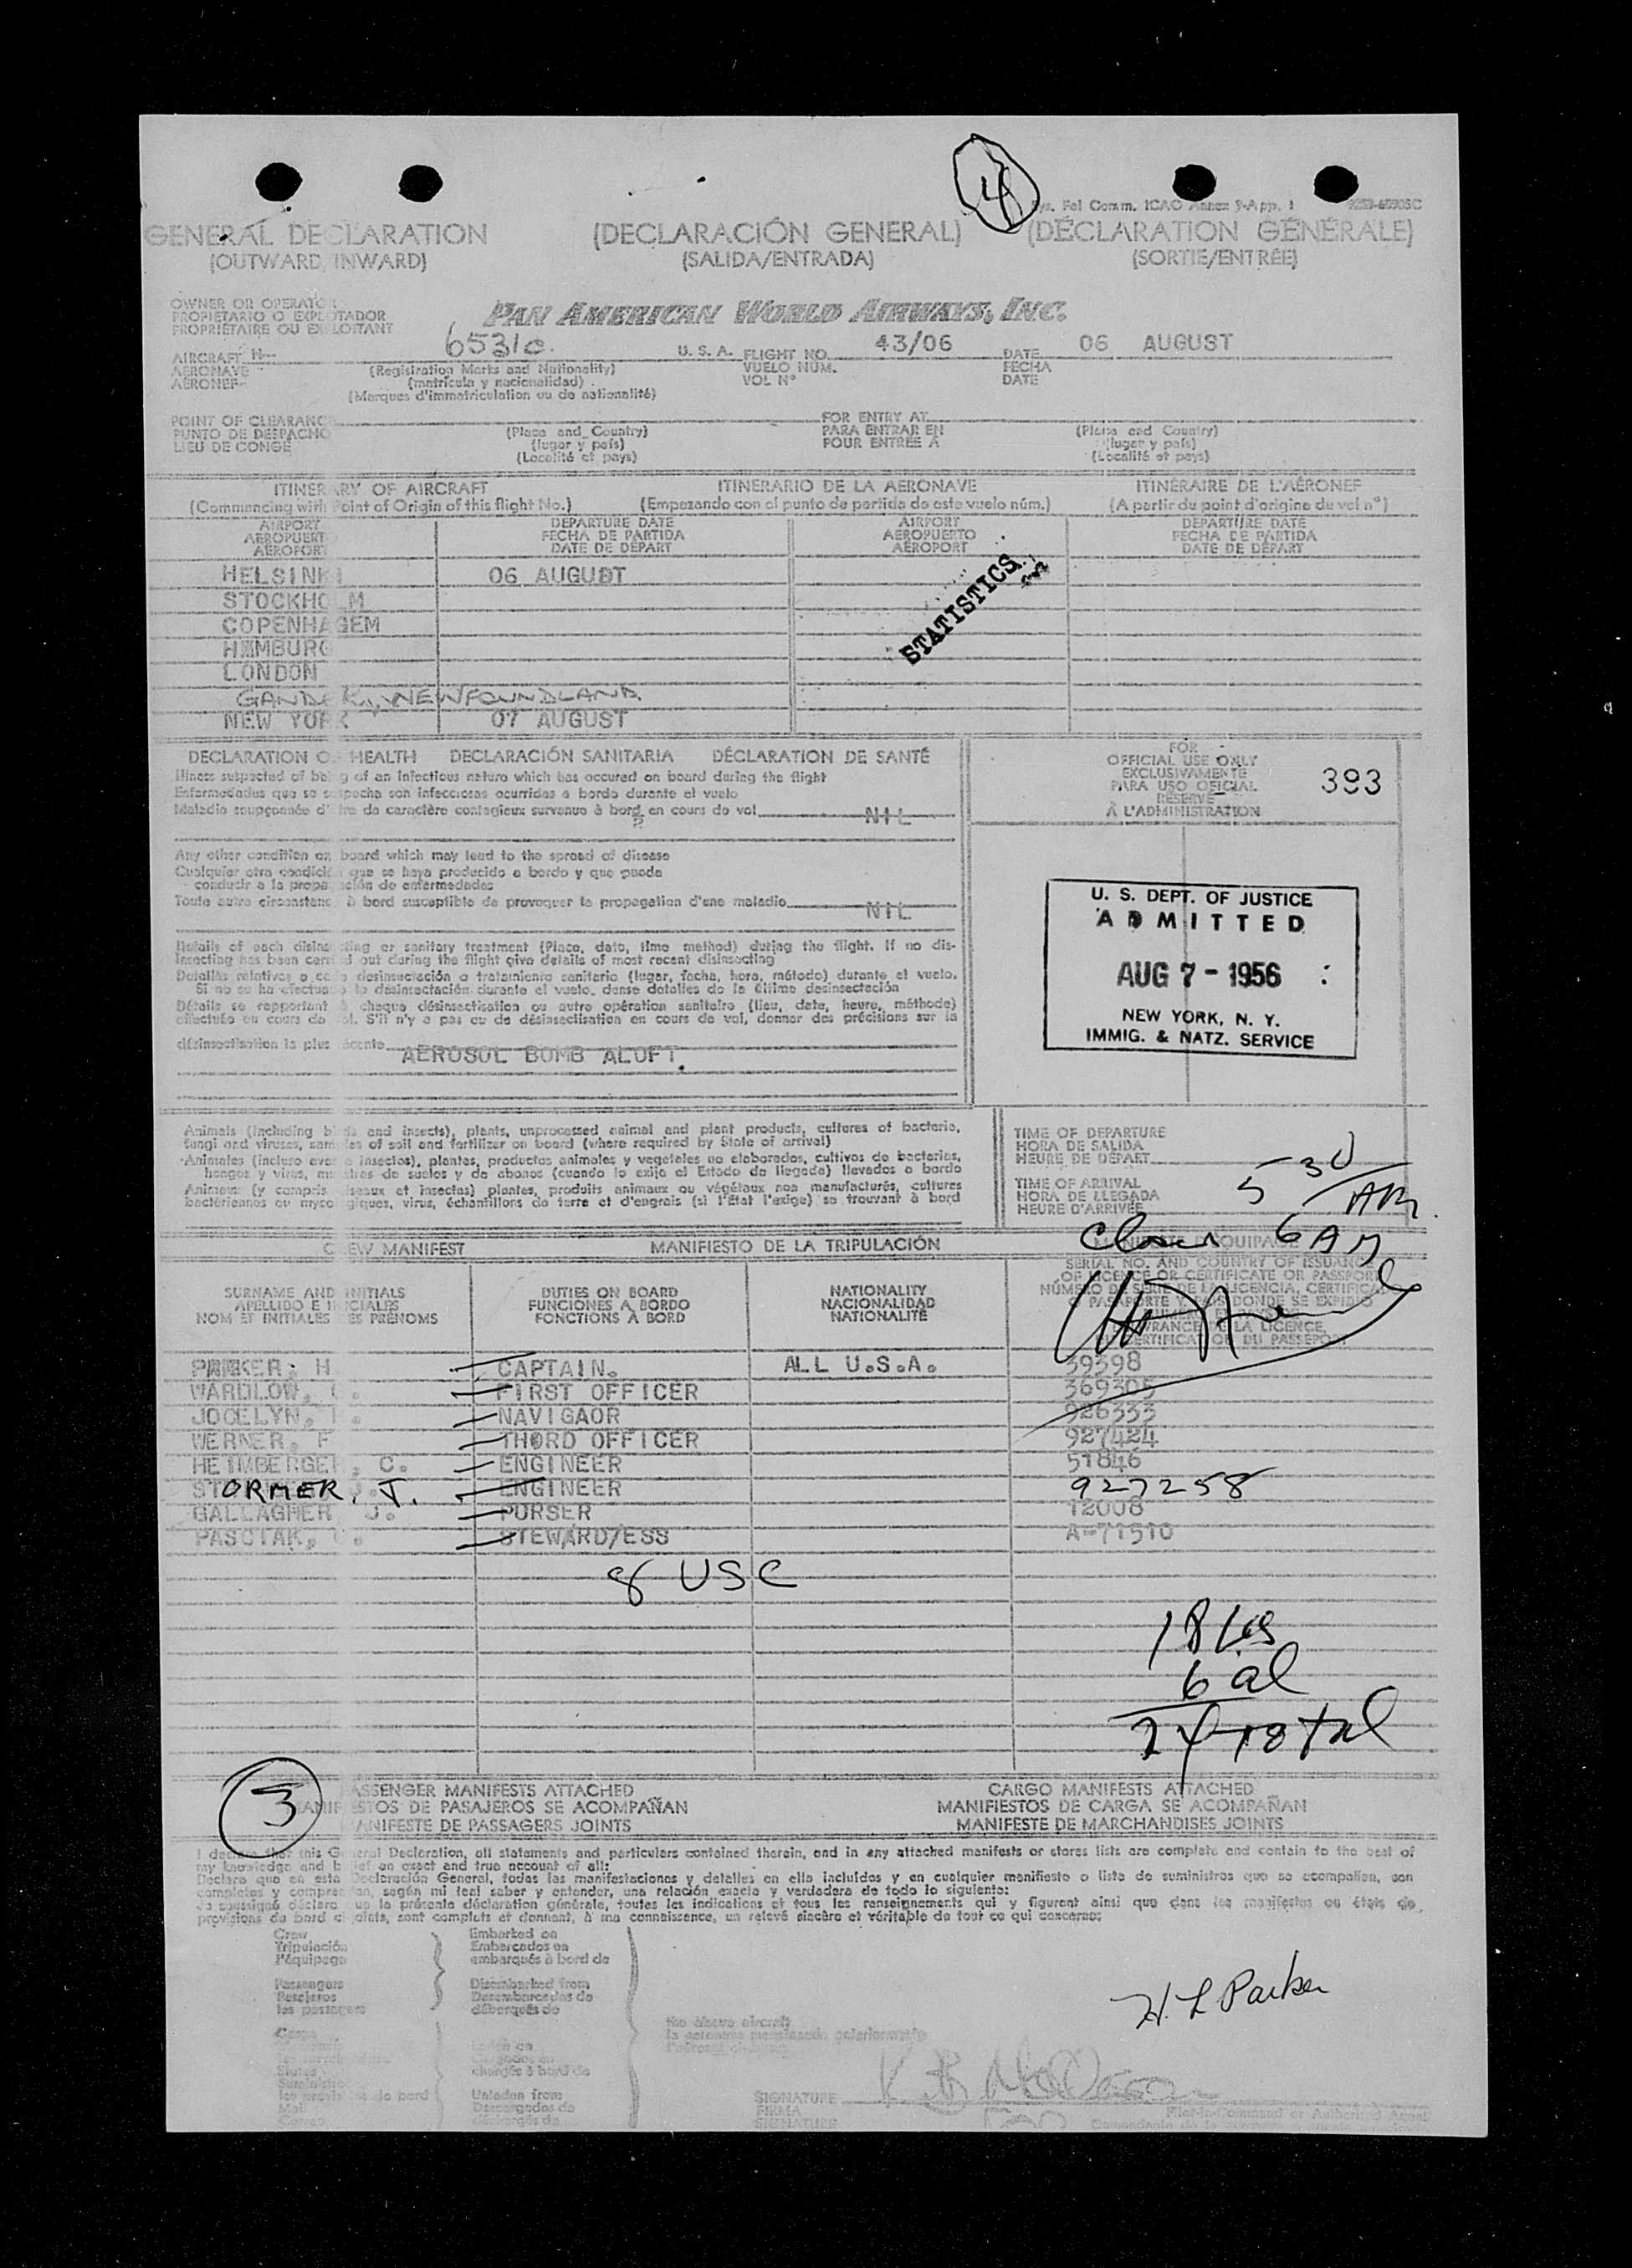 14
GENERAL DECLARATION (DECLARACIÓN GENERAL) (DÉCLARATION GÉNÉRALE)
(OUTWARD/INWARD) (SALIDA/ENTRADA) (SORTIE/ENTRÉE)
PAN AMERICAN WORLD AIRWAYS, INC.
OWNER OR OPERATOR
PROPIETARIO O EXPLOTADOR
PROPRIÉTAIRE OU EXPLOITANT
AIRCRAFT N- 6531C U.S.A. FLIGHT NO. 43/06 DATE 06 AUGUST
AERONAVE (Registration Marks and Nationality) VUELO NÚM. FECHA
AÉRONEF (matrícula y nacionalidad) VOL Nº DATE
(Marques d'immatriculation ou de nationalité)
POINT OF CLEARANCE FOR ENTRY AT
PUNTO DE DESPACHO (Place and Country) PARA ENTRAR EN (Place and Country)
LIEU DE CONGÉ (lugar y país) POUR ENTRÉE À (lugar y país)
(Localité et pays) (Localité et pays)
ITINERARY OF AIRCRAFT ITINERARIO DE LA AERONAVE ITINÉRAIRE DE L'AÉRONEF
(Commencing with Point of Origin of this flight No.) (Empezando con el punto de partida de este vuelo núm.) (A partir du point d'origine du vol nº)
AIRPORT DEPARTURE DATE AIRPORT DEPARTURE DATE
AEROPUERTO FECHA DE PARTIDA AEROPUERTO FECHA DE PARTIDA
AÉROPORT DATE DE DÉPART AÉROPORT DATE DE DÉPART
HELSINKI 06 AUGUDT
STOCKHOLM
COPENHAGEM
HAMBURG
LONDON
GANDER, NEWFOUNDLAND
NEW YORK 07 AUGUST
STATISTICS
DECLARATION OF HEALTH DECLARACIÓN SANITARIA DÉCLARATION DE SANTÉ
Illness suspected of being of an infectious nature which has occured on board during the flight
Enfermedades que se sospecha son infecciosas ocurridas a bordo durante el vuelo
Maladie soupçonnée d'être de caractère contagieux survenue à bord en cours de vol NIL
FOR
OFFICIAL USE ONLY
EXCLUSIVAMENTE
PARA USO OFICIAL
RÉSERVÉ
À L'ADMINISTRATION
393
Any other condition on board which may lead to the spread of disease
Cualquier otra condición que se haya producido a bordo y que puede
conducir a la propagación de enfermedades
Toute autre circonstance à bord susceptible de provoquer la propagation d'une maladie NIL
U. S. DEPT. OF JUSTICE
ADMITTED
AUG 7 - 1956
NEW YORK, N. Y.
IMMIG. & NATZ. SERVICE
Details of each disinsecting or sanitary treatment (Place, date, time method) during the flight. If no dis-
insecting has been carried out during the flight give details of most recent disinsecting
Detalles relativos a cada desinsectación o tratamiento sanitario (lugar, fecha, hora, método) durante el vuelo.
Si no se ha efectuado la desinsectación durante el vuelo, dense detalles de la última desinsectación
Détails se rapportant à chaque désinsectisation ou autre opération sanitaire (lieu, date, heure, méthode)
effectuée en cours de vol. S'il n'y a pas eu de désinsectisation en cours de vol, donner des précisions sur la
désinsectisation la plus récente AEROSOL BOMB ALOFT.
Animals (including birds and insects), plants, unprocessed animal and plant products, cultures of bacteria,
fungi and viruses, samples of soil and fertilizer on board (where required by State of arrival)
Animales (incluso aves e insectos), plantas, productos animales y vegetales no elaborados, cultivos de bacterias,
hongos y virus, muestras de suelos y de abonos (cuando lo exija el Estado de llegada) llevados a bordo
Animaux (y compris oiseaux et insectes) plantes, produits animaux ou végétaux non manufacturés, cultures
bactériennes ou mycologiques, virus, échantillons de terre et d'engrais (si l'État l'exige) se trouvant à bord
TIME OF DEPARTURE
HORA DE SALIDA
HEURE DE DÉPART
TIME OF ARRIVAL
HORA DE LLEGADA
HEURE D'ARRIVÉE
5 30 AM
6 AM
CREW MANIFEST MANIFIESTO DE LA TRIPULACIÓN
SURNAME AND INITIALS DUTIES ON BOARD NATIONALITY
APELLIDO E INICIALES FUNCIONES A BORDO NACIONALIDAD
NOM ET INITIALES DES PRÉNOMS FONCTIONS À BORD NATIONALITÉ
SERIAL NO. AND COUNTRY OF ISSUANCE
OF LICENCE OR CERTIFICATE OR PASSPORT
PARKER, H CAPTAIN. ALL U.S.A. 39398
WARDLOW, FIRST OFFICER 369305
JOCELYN, NAVIGAOR 926333
WERNER, F THORD OFFICER 927424
HEIMBERGER, C. ENGINEER 51846
STORMER, J. ENGINEER 927258
GALLAGHER J. PURSER 12008
PASCIAK, STEWARD/ESS A-71510
8 USC
18
6 al
24 total
3
PASSENGER MANIFESTS ATTACHED CARGO MANIFESTS ATTACHED
MANIFIESTOS DE PASAJEROS SE ACOMPAÑAN MANIFIESTOS DE CARGA SE ACOMPAÑAN
MANIFESTE DE PASSAGERS JOINTS MANIFESTE DE MARCHANDISES JOINTS
I declare that this General Declaration, all statements and particulars contained therein, and in any attached manifests or stores lists are complete and contain to the best of
my knowledge and belief an exact and true account of all:
Declaro que en esta Declaración General, todas las manifestaciones y detalles en ella incluidos y en cualquier manifiesto o lista de suministros que se acompañen, son
completos y comprenden, según mi leal saber y entender, una relación exacta y verdadera de todo lo siguiente:
Je soussigné déclare que la présente déclaration générale, toutes les indications et tous les renseignements qui y figurent ainsi que dans les manifestes ou états de
provisions de bord ci-joints, sont complets et donnent, à ma connaissance, un relevé sincère et véritable de tout ce qui concerne:
Crew Embarked on
Tripulación Embarcados en
l'équipage embarqués à bord de
Passengers Disembarked from
Pasajeros Desembarcados de
les passagers débarqués de
the above aircraft
H. L. Parker
Unladen from
Mail Descargados de
SIGNATURE
FIRMA
SIGNATURE
Pilot-in-Command or Authorised Agent